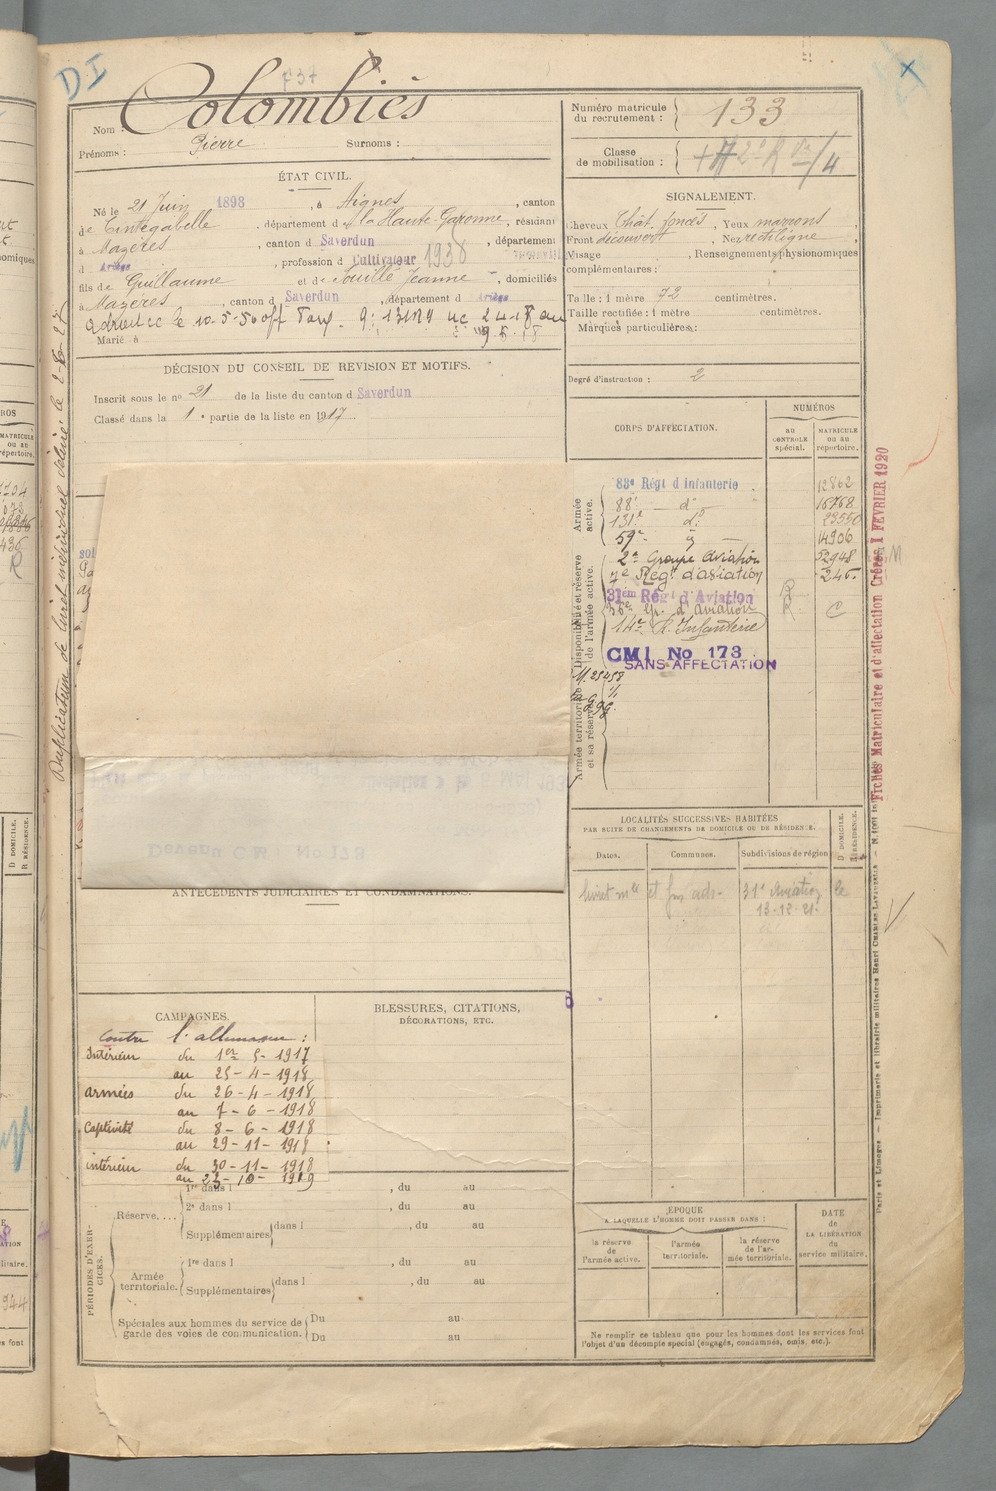 DI
Nom : Colombiès
Prénoms : Pierre Surnoms :
Numéro matricule du recrutement : 133
Classe de mobilisation :
ÉTAT CIVIL.
Né le 21 Juin 1898, à Aignes, canton
de Cintegabelle, département d e la Haute-Garonne, résidant
à Mazères, canton d Saverdun, département
d Ariège, profession d Cultivateur 1938
fils de Guillaume et de Souillé Jeanne, domiciliés
à Mazères, canton d Saverdun, département d Ariège
Marié à
SIGNALEMENT.
Cheveux Chât. foncés, Yeux marrons
Front découvert, Nez rectiligne
Visage , Renseignements physionomiques
complémentaires :
Taille : 1 mètre 72 centimètres.
Taille rectifiée : 1 mètre centimètres.
Marques particulières :
Degré d'instruction : 2
DÉCISION DU CONSEIL DE REVISION ET MOTIFS.
Inscrit sous le nº 21 de la liste du canton d Saverdun
Classé dans la 1e partie de la liste en 1917
CORPS D'AFFECTATION.
NUMÉROS
AU CONTROLE spécial.
MATRICULE ou au répertoire.
Armée active.
88e Régt d'Infanterie 12862
88e dº 16768
131e dº 23550
59e 14906
Disponibilité et réserve de l'armée active.
2e Groupe Aviation 52948
7e Régt d'aviation 246
31ème Régt d'Aviation
36e Gp. d'aviation R C
14e R. Infanterie
CMI No 173
SANS AFFECTATION
Armée territoriale et sa réserve
Devenu CMI No 173
LOCALITÉS SUCCESSIVES HABITÉES
PAR SUITE DE CHANGEMENTS DE DOMICILE OU DE RÉSIDENCE.
Dates. Communes. Subdivisions de région D DOMICILE. R RÉSIDENCE.
livret mle et 31e Aviation le
13-12-21
ANTÉCÉDENTS JUDICIAIRES ET CONDAMNATIONS.
CAMPAGNES.
Contre l'allemagne :
Intérieur du 1er 5-1917
au 25-4-1918
armées du 26-4-1918
au 7-6-1918
Captivité du 8-6-1918
au 29-11-1918
intérieur du 30-11-1918
au 23-10-1919
BLESSURES, CITATIONS,
DÉCORATIONS, ETC.
PÉRIODES D'EXERCICES.
Réserve....
1re dans l , du au
2e dans l , du au
Supplémentaires dans l , du au
Armée territoriale.
1re dans l , du au
Supplémentaires dans l , du au
Spéciales aux hommes du service de garde des voies de communication.
Du au
Du au
ÉPOQUE
A LAQUELLE L'HOMME DOIT PASSER DANS :
la réserve de l'armée active.
l'armée territoriale.
la réserve de l'armée territoriale.
DATE de LA LIBÉRATION du service militaire.
Ne remplir ce tableau que pour les hommes dont les services font
l'objet d'un décompte spécial (engagés, condamnés, omis, etc.).
Duplicatum de livret individuel délivré le 2-6-27
Fiches Matriculaire et d'affectation Créées 1 FEVRIER 1920
Paris et Limoges — Imprimerie et librairie militaires Henri CHARLES-LAVAUZELLE